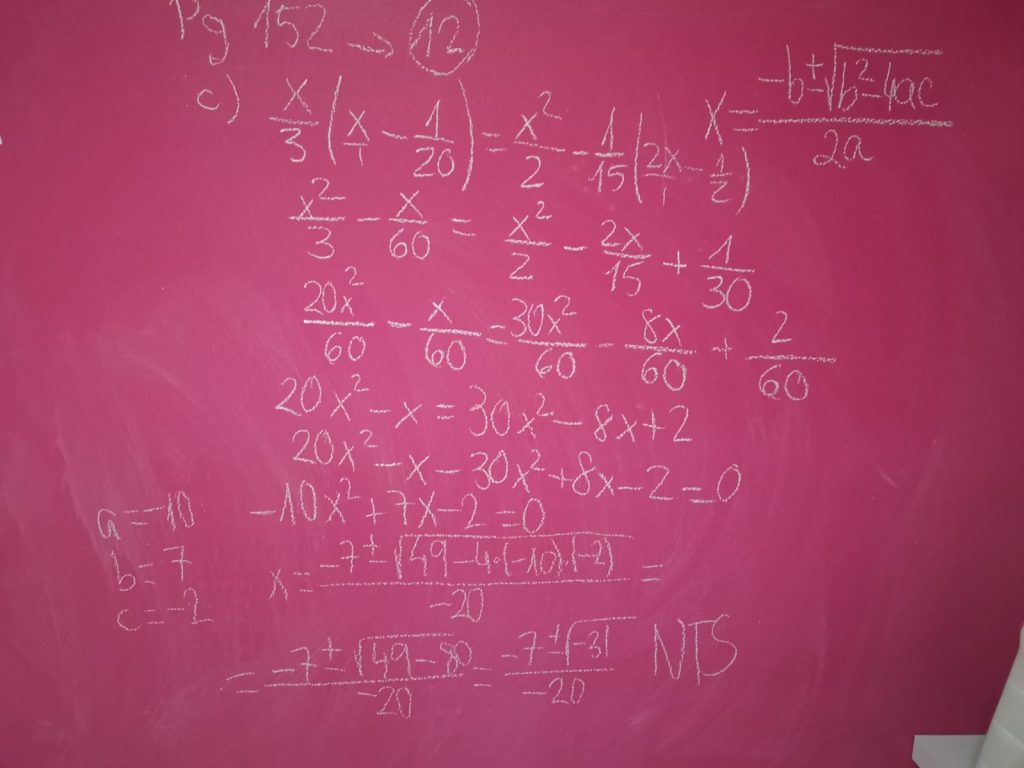 Pg 152 → 12
c) x/3 (x/1 - 1/20) = x²/2 - 1/15 (2x/1 - 1/2)
x = (-b ± √(b² - 4ac))/2a
x²/3 - x/60 = x²/2 - 2x/15 + 1/30
20x²/60 - x/60 = 30x²/60 - 8x/60 + 2/60
20x² - x = 30x² - 8x + 2
20x² - x - 30x² + 8x - 2 = 0
-10x² + 7x - 2 = 0
a = -10
b = 7
c = -2
x = (-7 ± √(49 - 4·(-10)·(-2)))/-20 =
= (-7 ± √(49 - 80))/-20 = (-7 ± √(-31))/-20 NTS